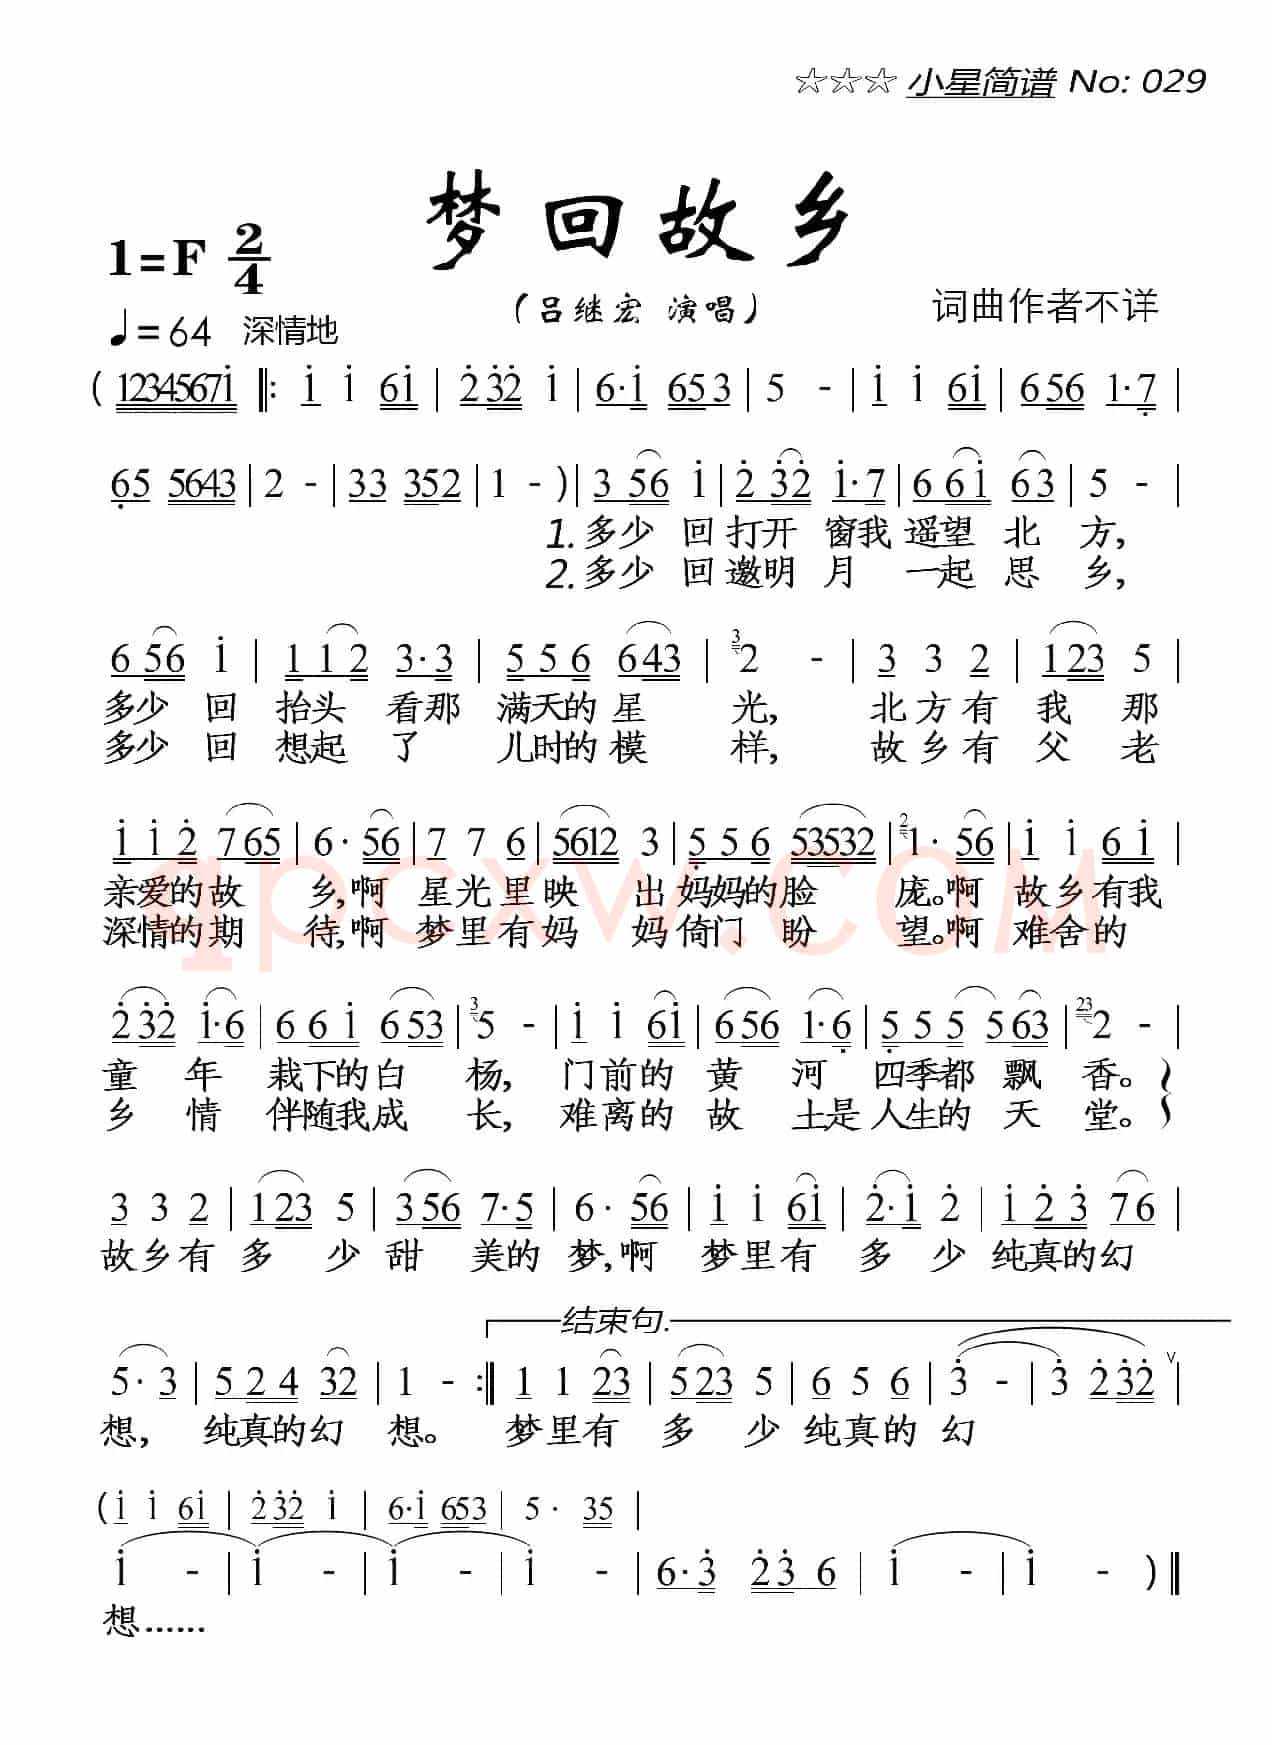 ☆☆☆ 小星简谱 No: 029
梦回故乡
1=F 2/4
(吕继宏 演唱)
词曲作者不详
♩=64 深情地
( 1234567i ‖: i i 6i | 2 32 i | 6·i 653 | 5 - | i i 6i | 656 1·7 |
65 5643 | 2 - | 33 352 | 1 - ) | 3 56 i | 2 32 i·7 | 6 6i 63 | 5 - |
1.多少 回 打开 窗我 遥望 北 方,
2.多少 回 邀明 月 一起 思 乡,
6 56 i | 1 12 3·3 | 5 5 6 643 | 3 2 - | 3 3 2 | 1 23 5
多少 回 抬头 看那 满天的 星 光, 北方有 我 那
多少 回 想起 了 儿时的 模 样, 故乡有 父 老
i i 2 765 | 6· 56 | 7 7 6 | 5612 3 | 5 5 6 53532 | 2 1· 56 | i i 6 i |
亲爱的故 乡,啊 星光里映 出 妈妈的脸 庞。啊 故乡有我
深情的期 待,啊 梦里有妈 妈倚门 盼 望。啊 难舍的
qpcxw.com
2 32 i·6 | 6 6 i 653 | 3 5 - | i i 6i | 656 1·6 | 5 5 5 563 | 23 2 - |
童 年 栽下的白 杨, 门前的 黄 河 四季都 飘 香。
乡 情 伴随我成 长, 难离的 故 土是 人生的 天 堂。
3 3 2 | 1 23 5 | 3 56 7·5 | 6· 56 | i i 6i | 2·i 2 | i 2 3 76 |
故乡有 多 少 甜 美的 梦,啊 梦里有 多 少 纯真的幻
结束句.
5·3 | 5 2 4 32 | 1 - :‖ 1 1 23 | 5 23 5 | 6 5 6 | 3 - | 3 2 32 ∨ |
想, 纯真的幻 想。 梦里有 多 少 纯真的 幻
( i i 6i | 2 32 i | 6·i 653 | 5 · 35 |
i - | i - | i - | i - | 6·3 23 6 | i - | i - ) ‖
想……